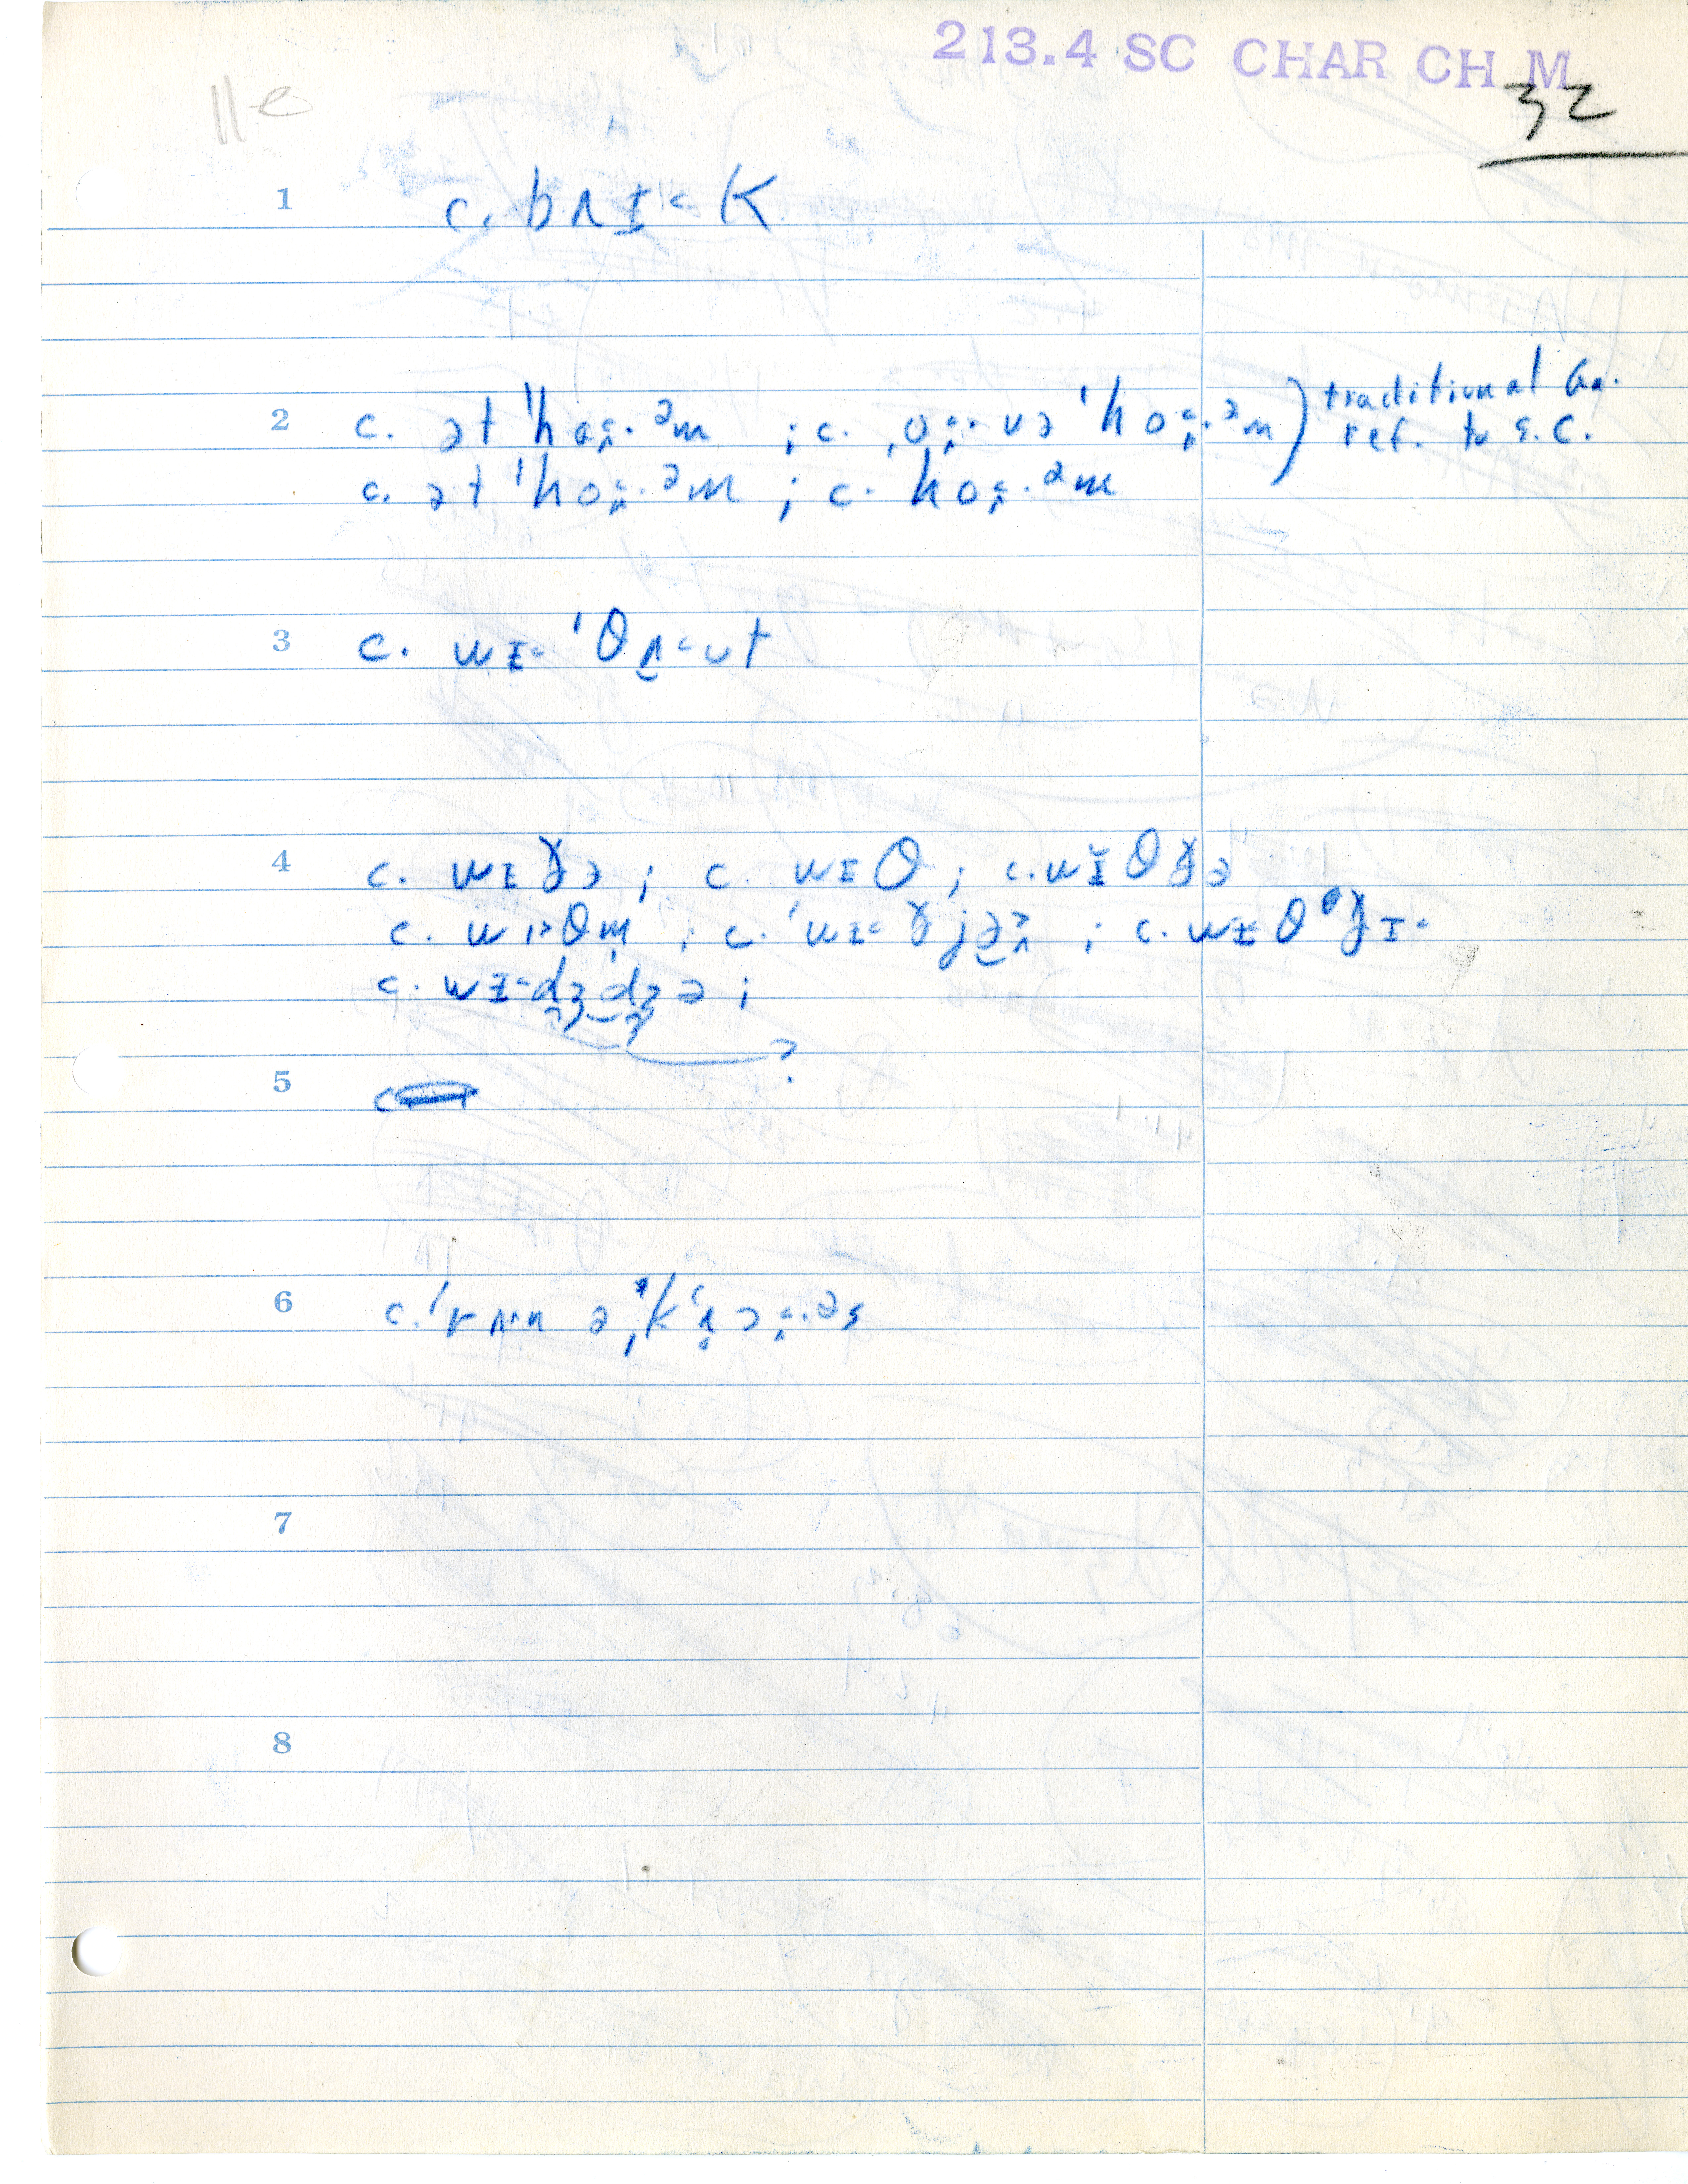 213.4 SC CHAR CH M
32
11e
1 c. bʌɪ˂ K
2 c. ət ˈhoʌ˂·ᵊm ; c. ˌoʌ˂· və ˈhoʌ˂·ᵊm ) traditional Ga.
ref. to S.C.
c. ət ˈhoʌ˂·ᵊm ; c. hoʌ˂·ᵊm
3 c. wɪ˂ ˈθʌ˂ut
4 c. wɪɣə ; c. wɪθ ; c. wɪ̆θɣə
c. wɪ˃θm̩ ; c. ˈwɪ˂ɣjə ; c. wɪθᶿɣɪ˂
c. wɪ˂dʒdʒə ;
?
5 c
6 c. ˈrʌ·n ə
7
8